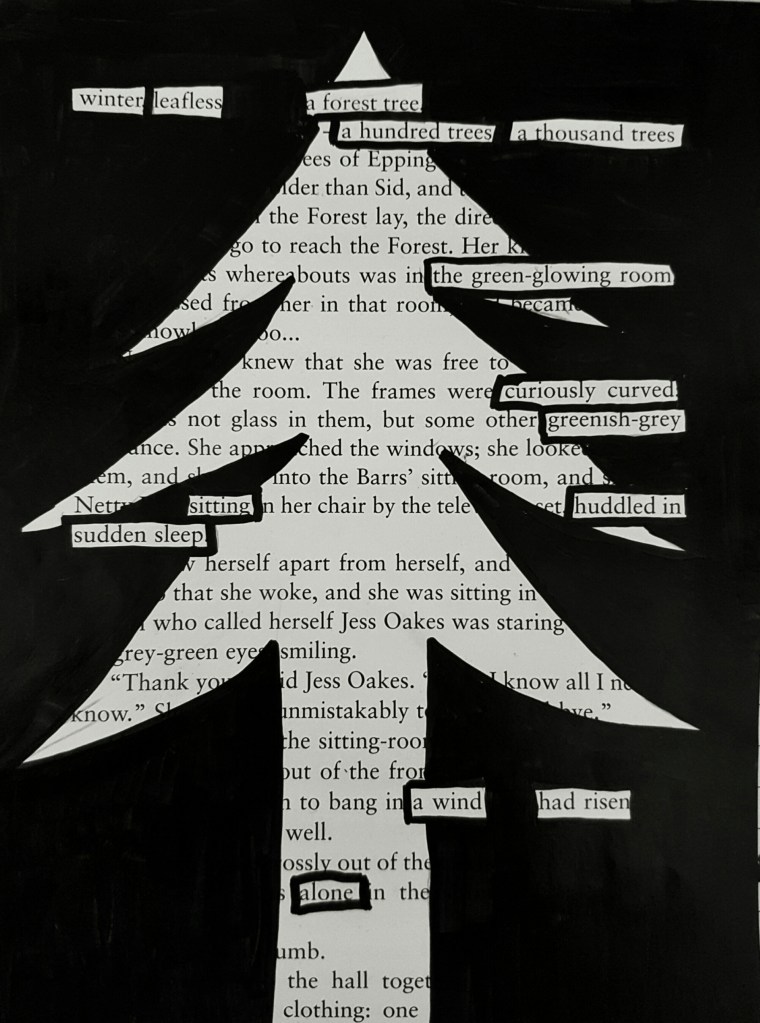 winter, leafless a forest tree,
- a hundred trees a thousand trees
ees of Epping
lder than Sid, and
the Forest lay, the dire
go to reach the Forest. Her k
s whereabouts was in the green-glowing room
sed fro her in that room, became
nowl oo...
knew that she was free to
the room. The frames were curiously curved,
s not glass in them, but some other greenish-grey
ance. She app ched the windows; she looke
em, and sh into the Barrs' sitt room, and s
Netty sitting n her chair by the tele set, huddled in
sudden sleep.
w herself apart from herself, and
that she woke, and she was sitting in
who called herself Jess Oakes was staring
grey-green eyes smiling.
"Thank you id Jess Oakes. " I know all I ne
know." S unmistakably t bye."
the sitting-roo
out of the fron
n to bang in a wind had risen
well.
ossly out of the
s alone in the
umb.
the hall toget
clothing: one